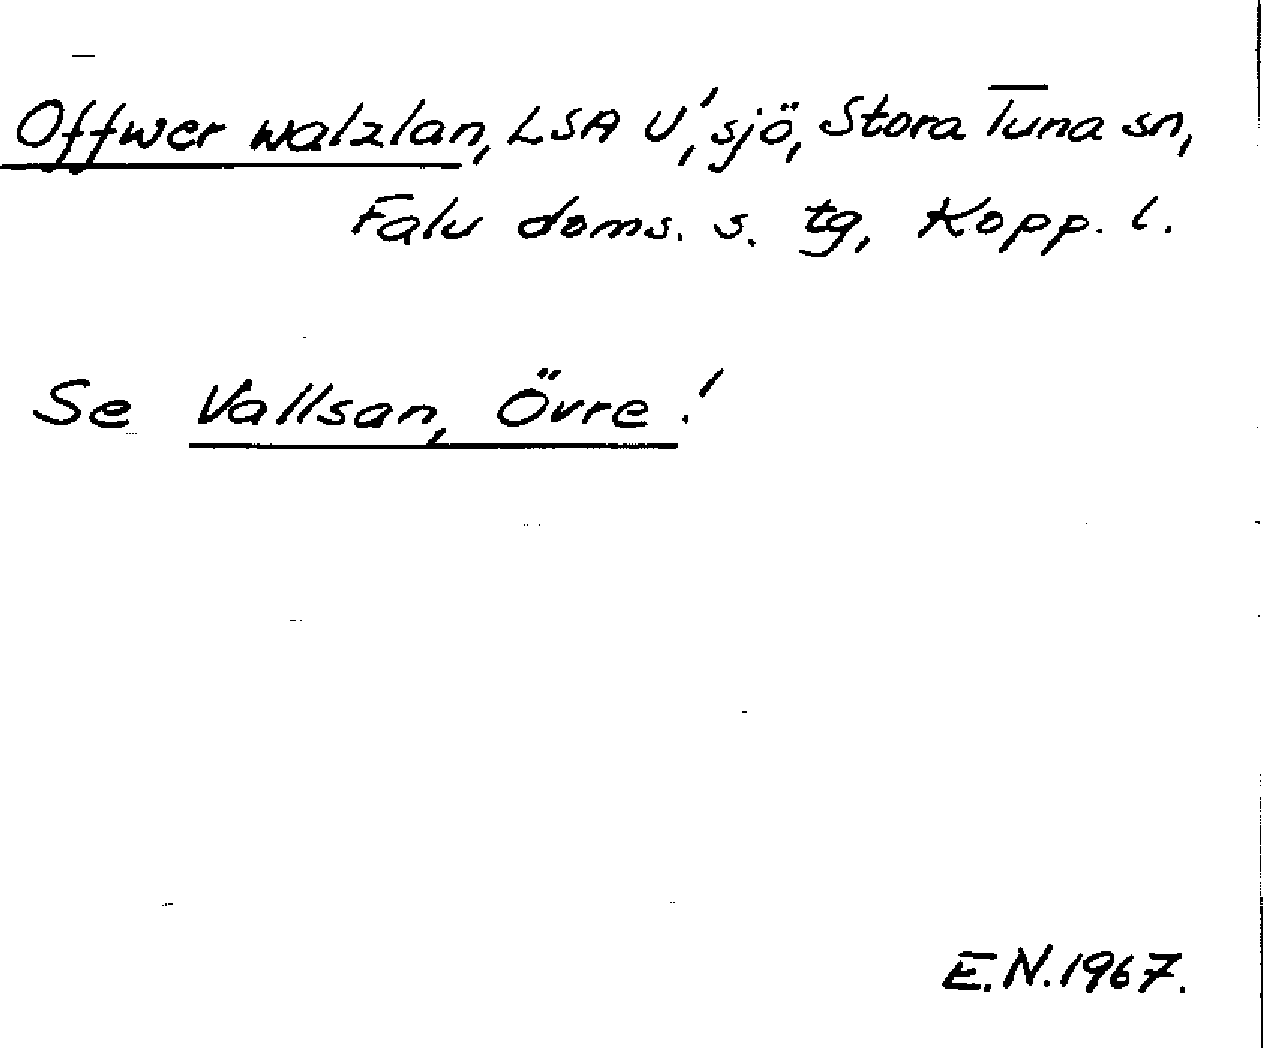 Offwer walzlan, LSA U¹, sjö, Stora Tuna sn,
Falu doms. s. tg, Kopp. l.
Se Vallsan, Övre!
E.N. 1967.